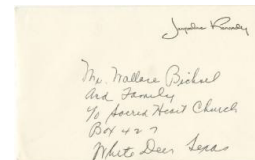 Jacqueline Kennedy
Mr. Wallace Bichsel
And Family
c/o Sacred Heart Church
Box 427
White Deer Texas